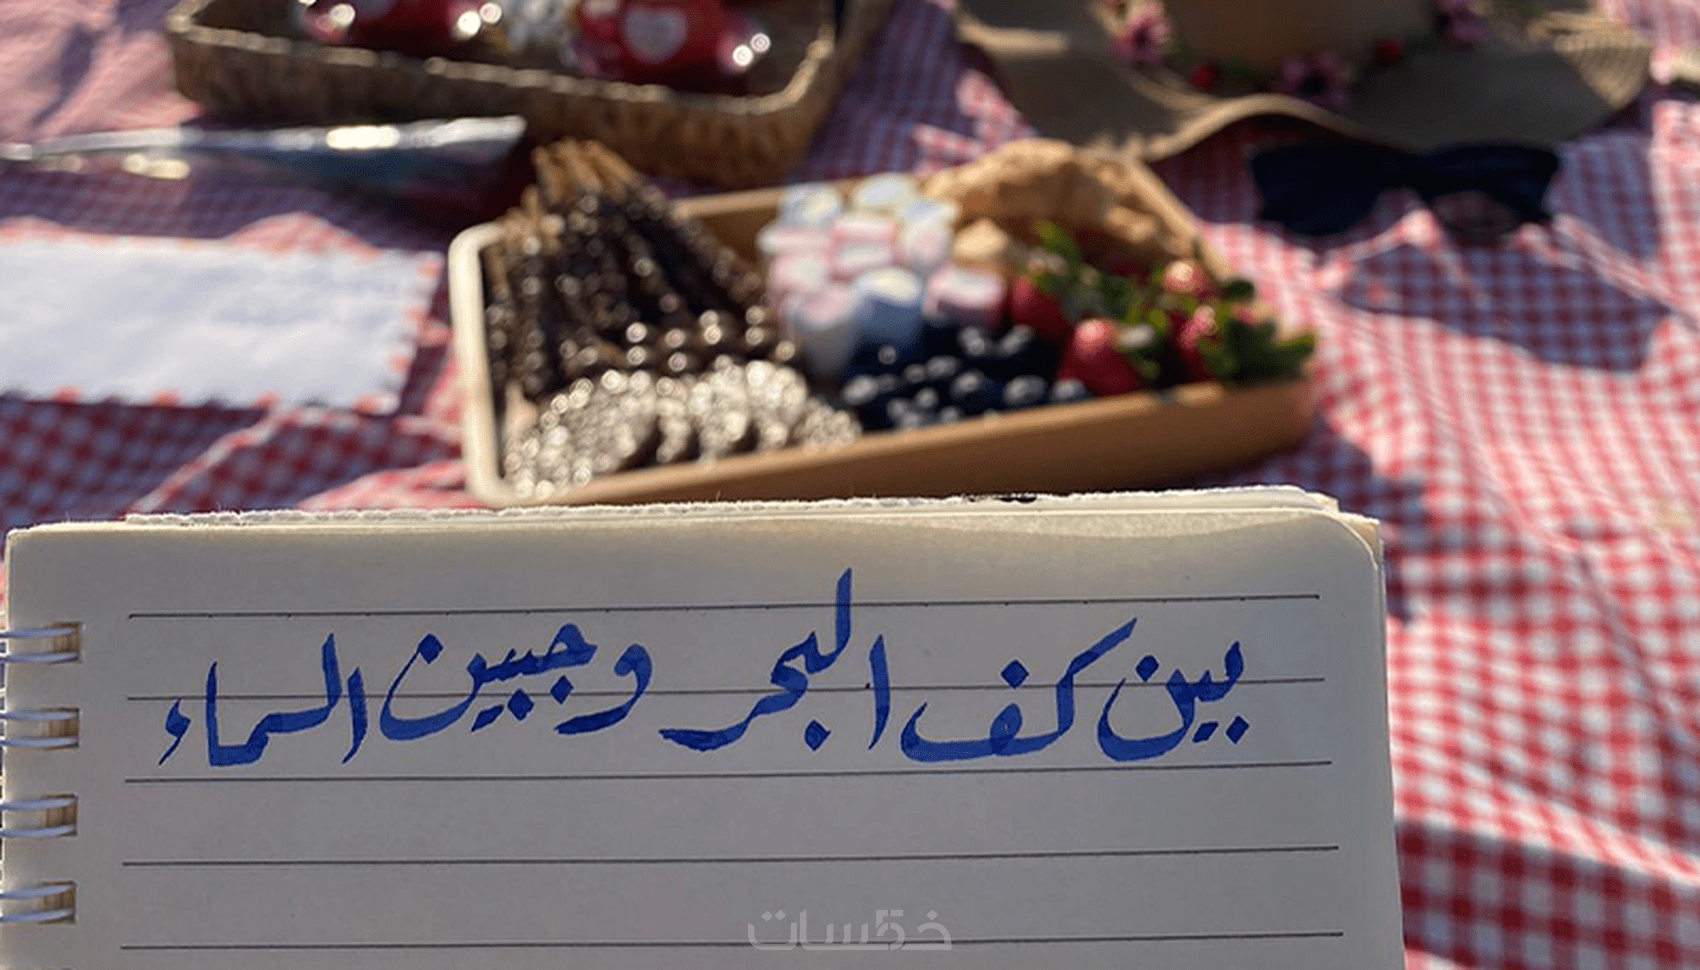 بين كف البحر وجبين السماء
خمسات